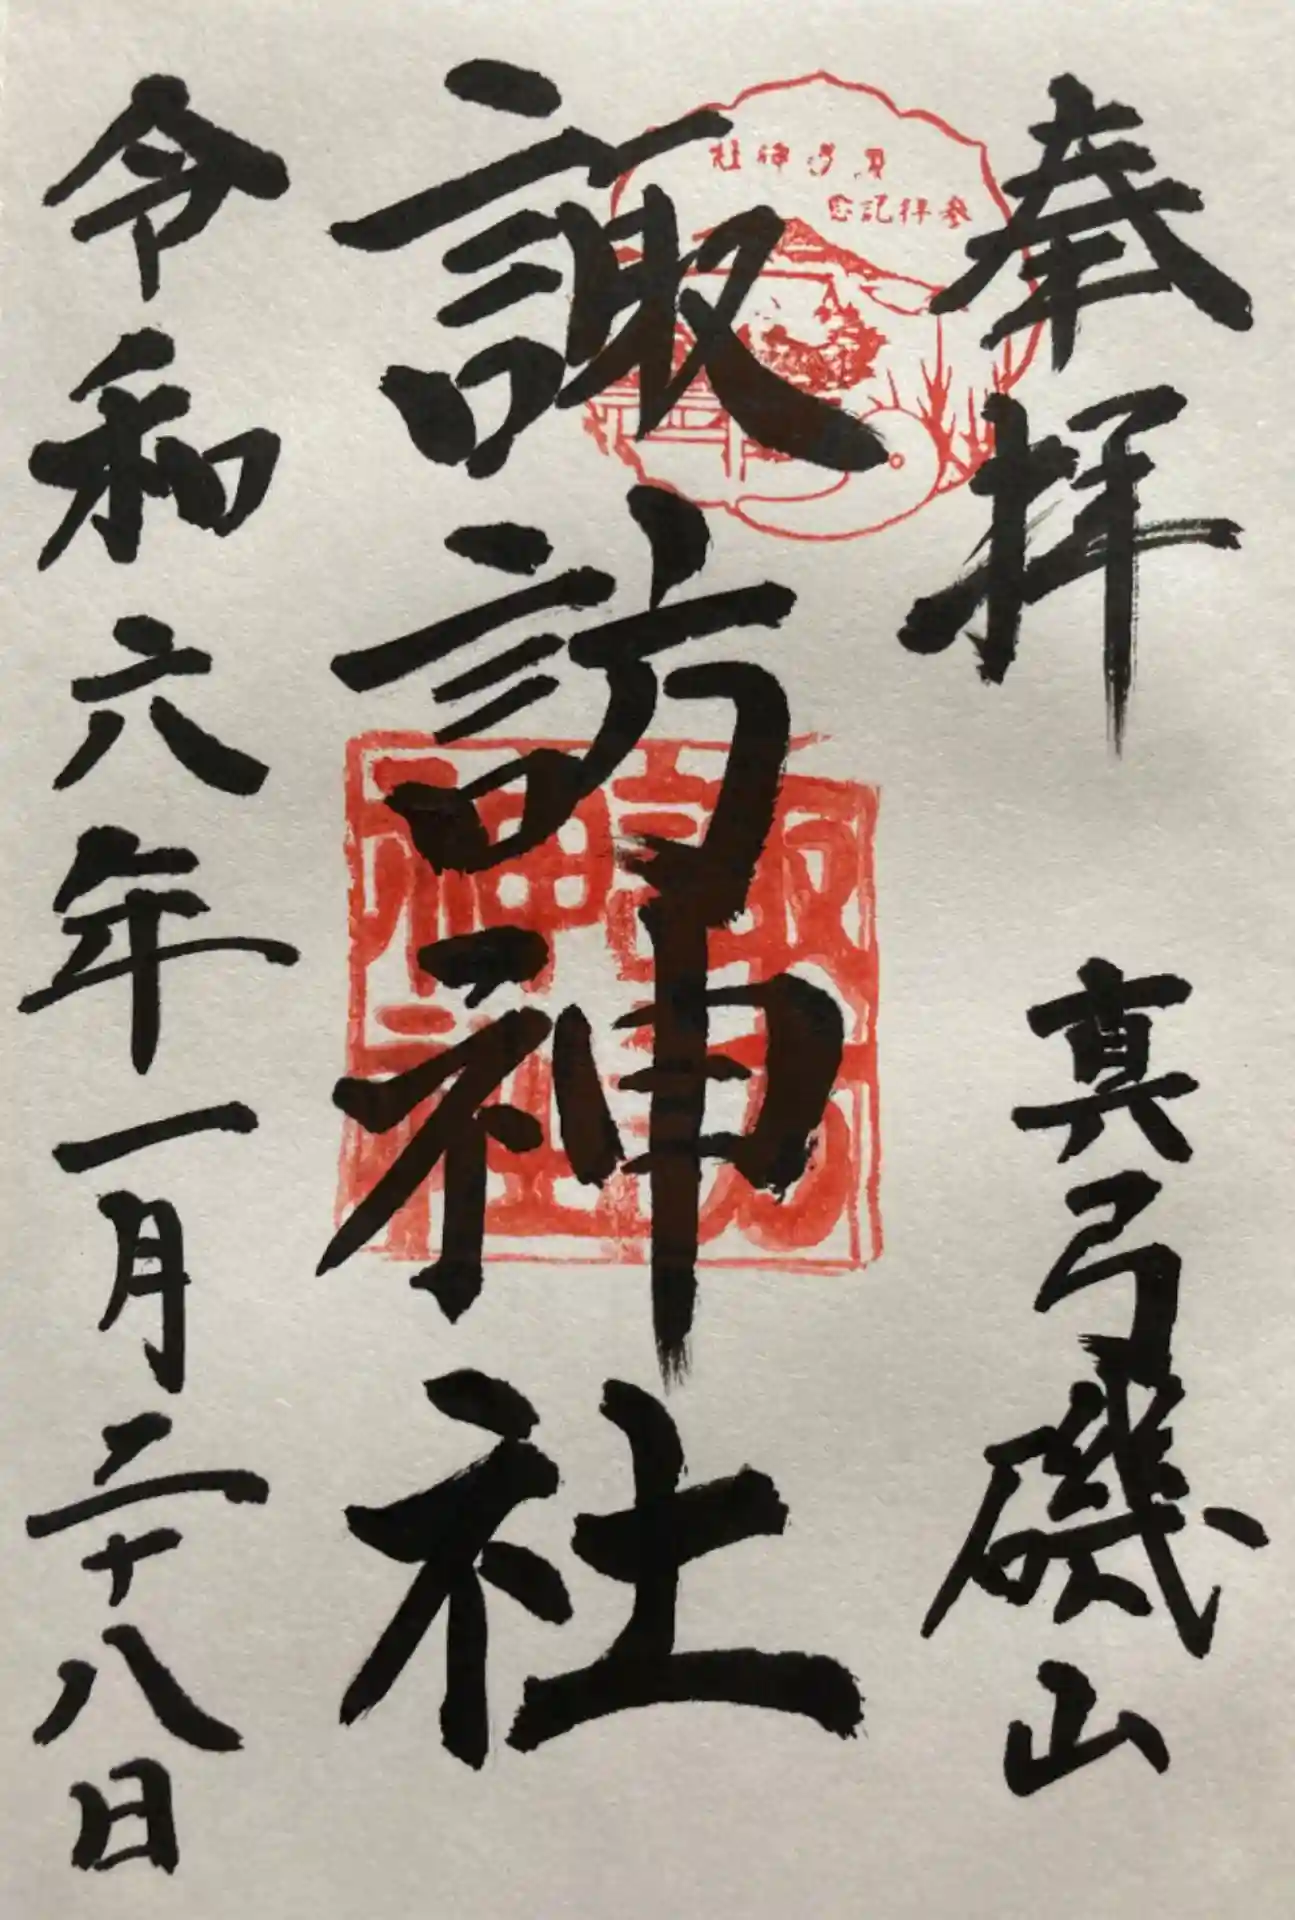 奉拝
真弓磯山
諏訪神社
諏訪神社
参拝記念
令和六年一月二十八日